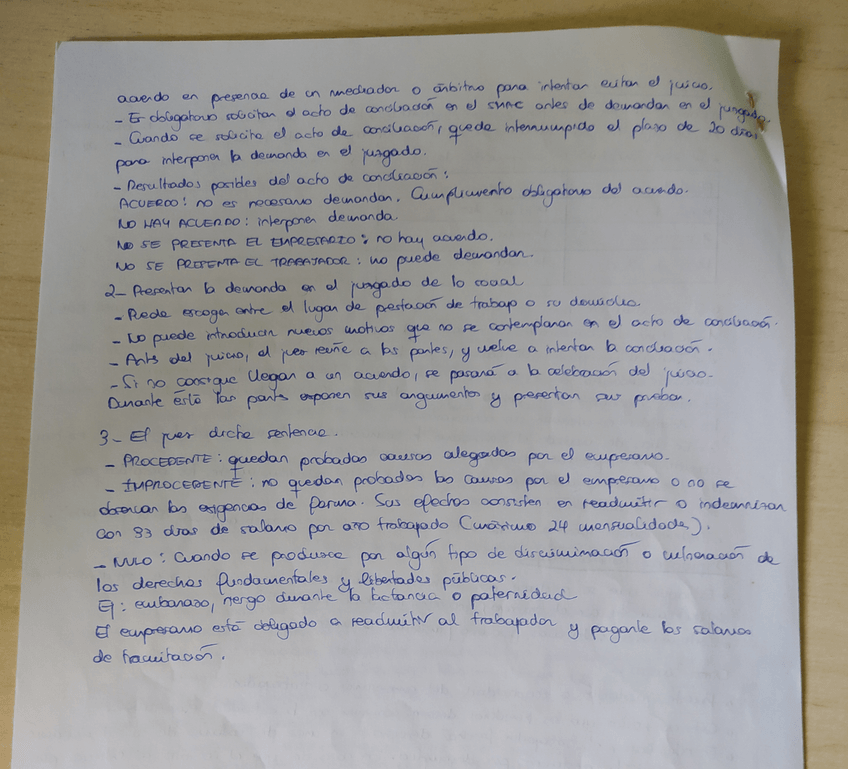 acuerdo en presencia de un mediador o árbitro para intentar evitar el juicio.
- Es obligatorio solicitar el acto de conciliación en el SMAC antes de demandar en el juzgado.
- Cuando se solicita el acto de conciliación, queda interrumpido el plazo de 20 días
para interponer la demanda en el juzgado.
- Resultados posibles del acto de conciliación:
ACUERDO: no es necesario demandar. Cumplimiento obligatorio del acuerdo.
NO HAY ACUERDO: interponer demanda
NO SE PRESENTA EL EMPRESARIO: no hay acuerdo.
NO SE PRESENTA EL TRABAJADOR: no puede demandar.
2- Presentar la demanda en el juzgado de lo social
- Puede escoger entre el lugar de prestación de trabajo o su domicilio.
- No puede introducir nuevos motivos que no se contemplaran en el acto de conciliación.
- Antes del juicio, el juez reúne a las partes, y vuelve a intentar la conciliación.
- Si no consigue llegar a un acuerdo, se pasará a la celebración del juicio.
Durante éste las partes exponen sus argumentos y presentan sus pruebas.
3- El juez dicta sentencia.
- PROCEDENTE: quedan probadas causas alegadas por el empresario.
- IMPROCEDENTE: no quedan probadas las causas por el empresario o no se
observan las exigencias de forma. Sus efectos consisten en readmitir o indemnizar
con 33 días de salario por año trabajado (máximo 24 mensualidades).
- NULO: Cuando se produzca por algún tipo de discriminación o vulneración de
los derechos fundamentales y libertades públicas.
Ej: embarazo, riesgo durante la lactancia o paternidad
El empresario está obligado a readmitir al trabajador y pagarle los salarios
de tramitación.